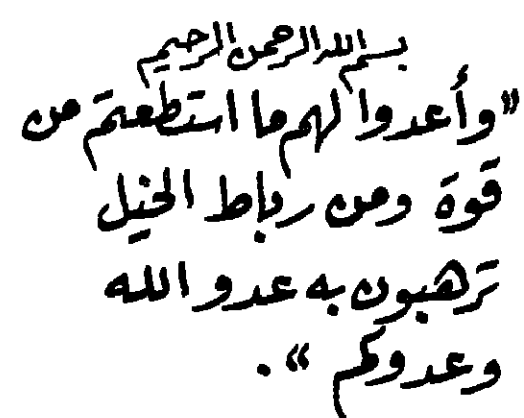 بسم الله الرحمن الرحيم
"وأعدوا لهم ما استطعتم من
قوة ومن رباط الخيل
ترهبون به عدو الله
وعدوكم".